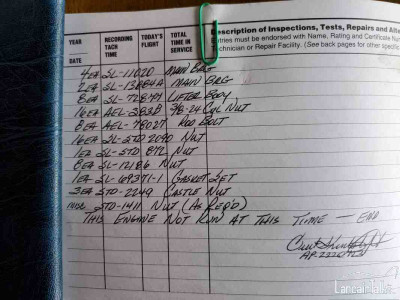 YEAR
DATE
RECORDING
TACH
TIME
TODAY'S
FLIGHT
TOTAL
TIME IN
SERVICE
Description of Inspections, Tests, Repairs and Alte
Entries must be endorsed with Name, Rating and Certificate
Technician or Repair Facility. (See back pages for other specific
4EA SL-11020 MAIN BRG
2EA SL-13884A MAIN BRG
8EA SL-72877 LIFTER BODY
16EA AEL-383B 3/8-24 CYL NUT
8EA AEL-78027 ROD BOLT
16EA SL-STD-2090 NUT
1EA SL-STD 872 NUT
8EA SL-12186 NUT
1EA SL-69371-1 GASKET SET
3EA STD-2249 CASTLE NUT
STD-1411 NUT (AS REQ'D)
THIS ENGINE NOT RUN AT THIS TIME — END
Lancairtalk